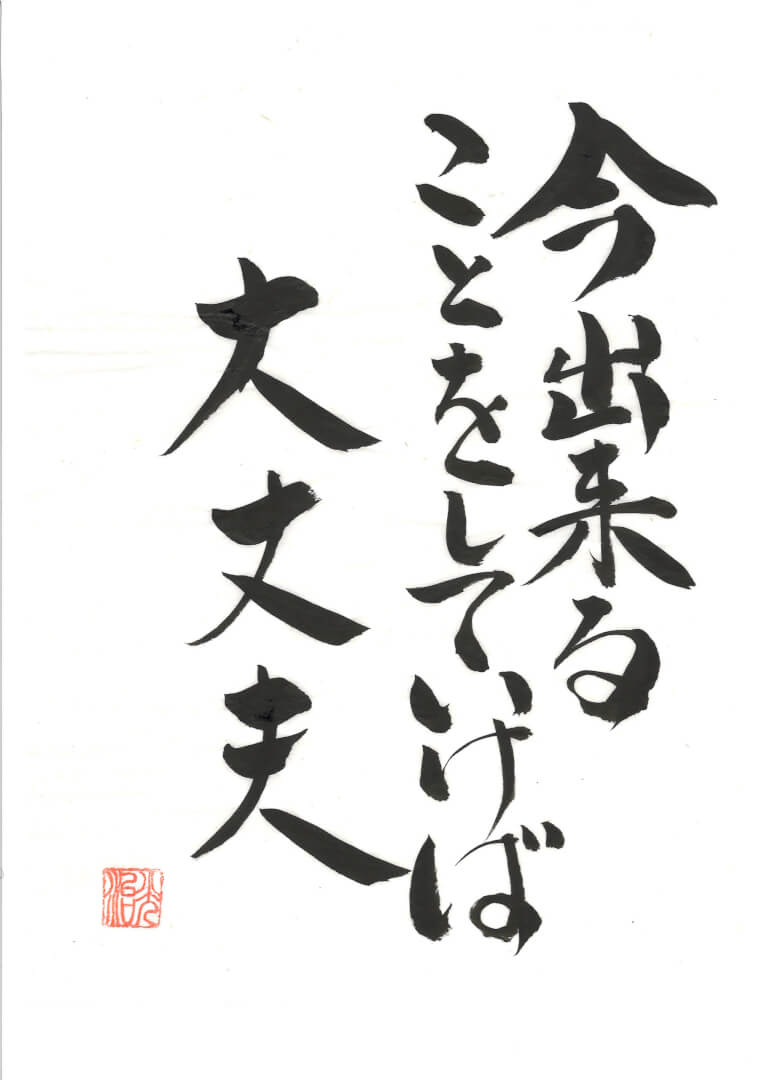 今出来る
ことをしていけば
大丈夫